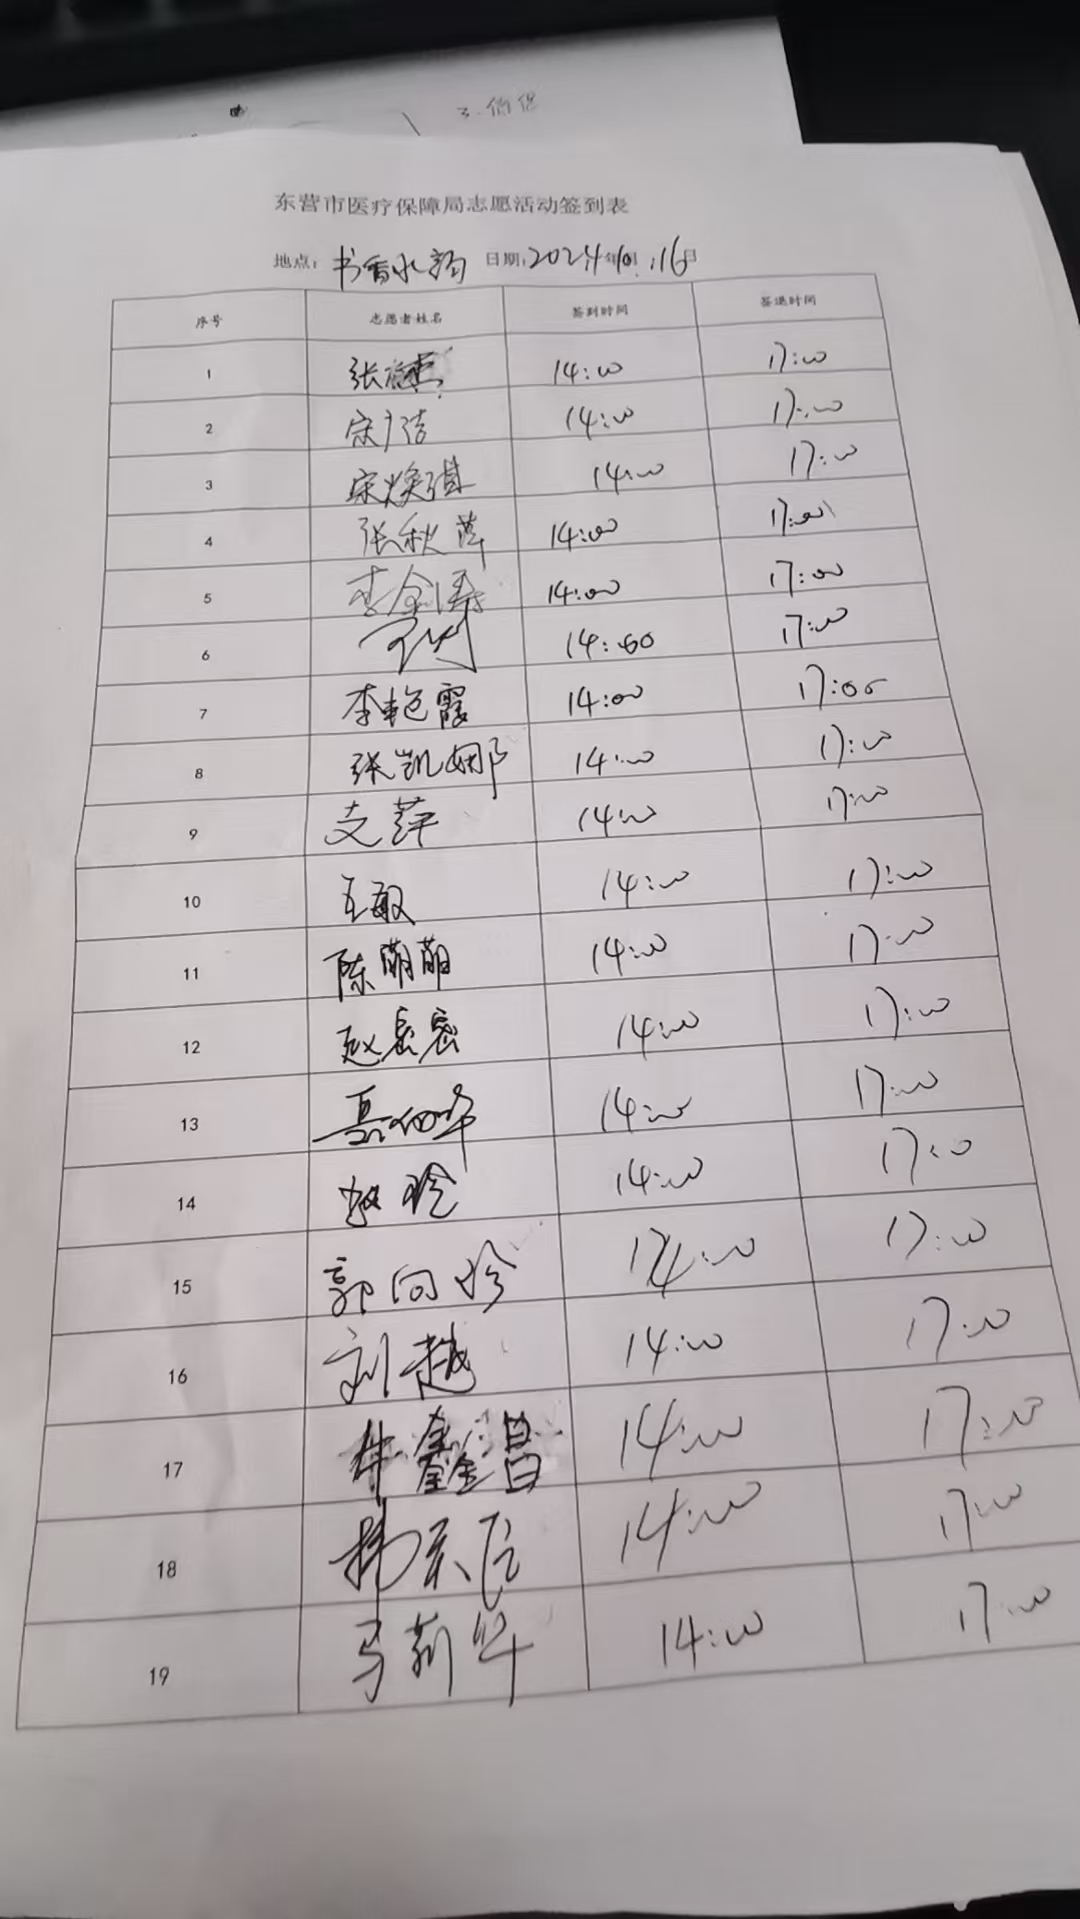 东营市医疗保障局志愿活动签到表
地点：书香水韵 日期：2024年10月16日
序号 志愿者姓名 签到时间 签退时间
1 张 14:00 17:00
2 宋广洁 14:00 17:00
3 宋焕琪 14:00 17:00
4 张秋萍 14:00 17:00
5 李金涛 14:00 17:00
6 14:00 17:00
7 李艳霞 14:00 17:00
8 张凯娜 14:00 17:00
9 支萍 14:00 17:00
10 王敏 14:00 17:00
11 陈萌萌 14:00 17:00
12 赵密密 14:00 17:00
13 14:00 17:00
14 玲 14:00 17:00
15 郭向珍 14:00 17:00
16 刘越 14:00 17:00
17 牛鑫昌 14:00 17:00
18 14:00 17:00
19 马莉华 14:00 17:00